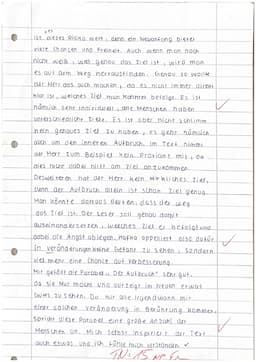 ist dieses Risiko wert, denn ein Neuanfang bietet
viele Chancen und Freiheit. Auch wenn man noch
nicht weiß, was genau das Ziel ist, wird man
es auf dem Weg herausfinden. Genau so wollte
der Herr aus sich machen, da es nicht immer allen
klar ist, welches Ziel man kommen befolgt. Es ist
nämlich sehr individuell, alle Menschen haben
unterschiedliche Ziele. Es ist aber nicht schlimm
kein genaues Ziel zu haben, es geht nämlich
auch um den inneren Aufbruch. Im Text nimmt
der Herr zum Beispiel kein Proviant mit, da
dies nicht dabei hilft am Ziel anzukommen.
Desweiteren hat der Herr kein wirkliches Ziel,
denn der Aufbruch allein ist schon Ziel genug.
Man könnte daraus deuten, dass der Weg
das Ziel ist. Der Leser soll genau damit
auseinandersetzen, welches Ziel er befolgt und
dabei die Angst ablegen. Kafka appelliert also dafür
in Veränderungen keine Gefahr zu sehen, sondern
viel mehr eine Chance auf Verbesserung.
Mir gefällt die Parabel „Der Aufbruch" sehr gut,
da sie Mut macht und aufzeigt im Neuen etwas
Gutes zu sehen. Da wir alle irgendwann mit
einer solchen Veränderung in Berührung kommen,
spricht diese Parabel eine große Anzahl an
Menschen an. Mich selbst inspiriert der Text
auch etwas und ich fühle mich verstanden.